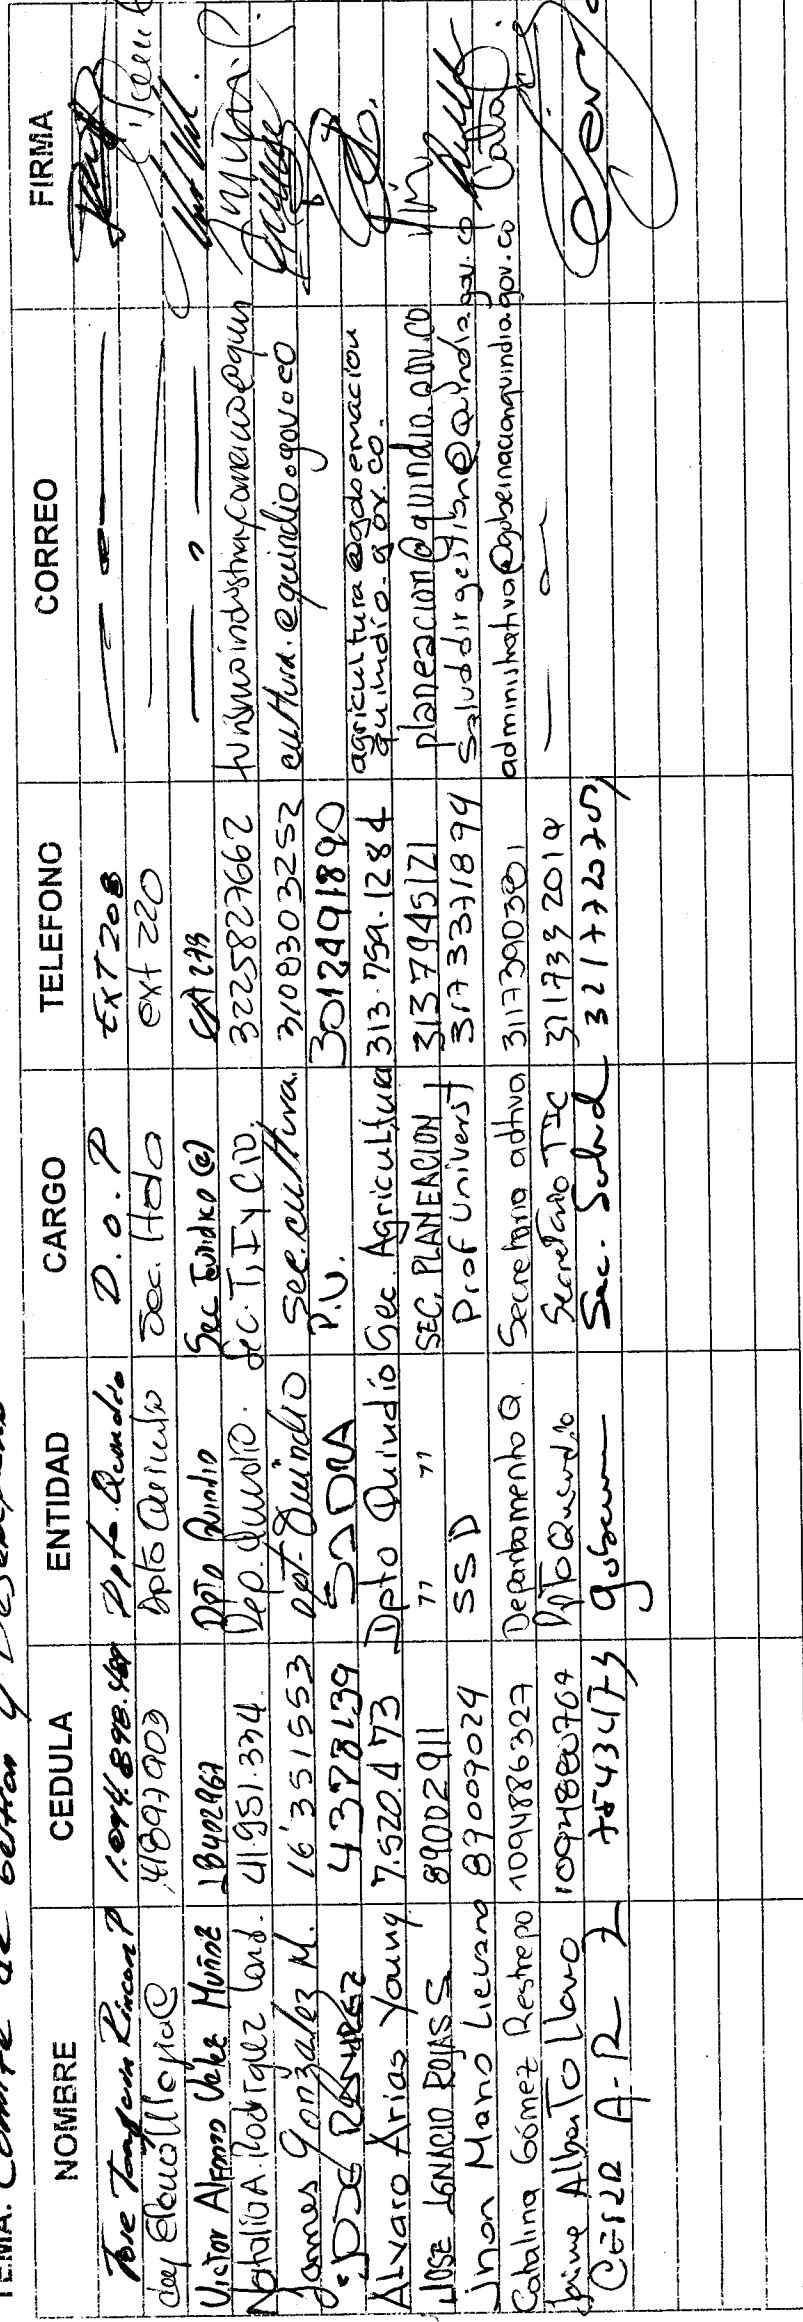 TEMA: Comite de Gestion y Desempeño
NOMBRE CEDULA ENTIDAD CARGO TELEFONO CORREO FIRMA
Jose Joaquin Rincon P 1.094.898. Dpto. Quindio D.O.P EXT 208
41897903 Dpto Quindio Sec. Hda ext 220
Victor Alfonso Velez Muñoz 18402967 Dpto Quindio Sec Juridico (e) EXT 273
Natalia A. Rodriguez Lond. 41.951.334. Dep. Quindio. Sec. T, I y CIO. 3225827662
James Gonzalez M. 16'351553 Dpt. Quindio Sec. cultura. 3108303252 cultura.@quindio.gov.co
JORGE RAMIREZ 4378139 SADRA P.U. 3012491890
Alvaro Arias Young 7.520.473 Dpto Quindío Sec. Agricultura 313.759.1284 agricultura@gobernacion
quindio.gov.co.
JOSE IGNACIO ROJAS S 89002911 " " SEC, PLANEACION 3137945121 planeacion@quindio.gov.co
Jhon Mario Lievano 89009024 SSD Prof Universt 3173371894 Saluddirgestion@quindio.gov.co
Catalina Gómez Restrepo 1094886327 Departamento Q. Secretaria adtiva 3117390301 administrativa@gobernacionquindio.gov.co Catalina
Jaime Alberto Llano 1094880769 Dpto Quindio Secretario TIC 3217332019
CESAR A-R Z 7543473 gobernacion Sec. Salud 3217720757